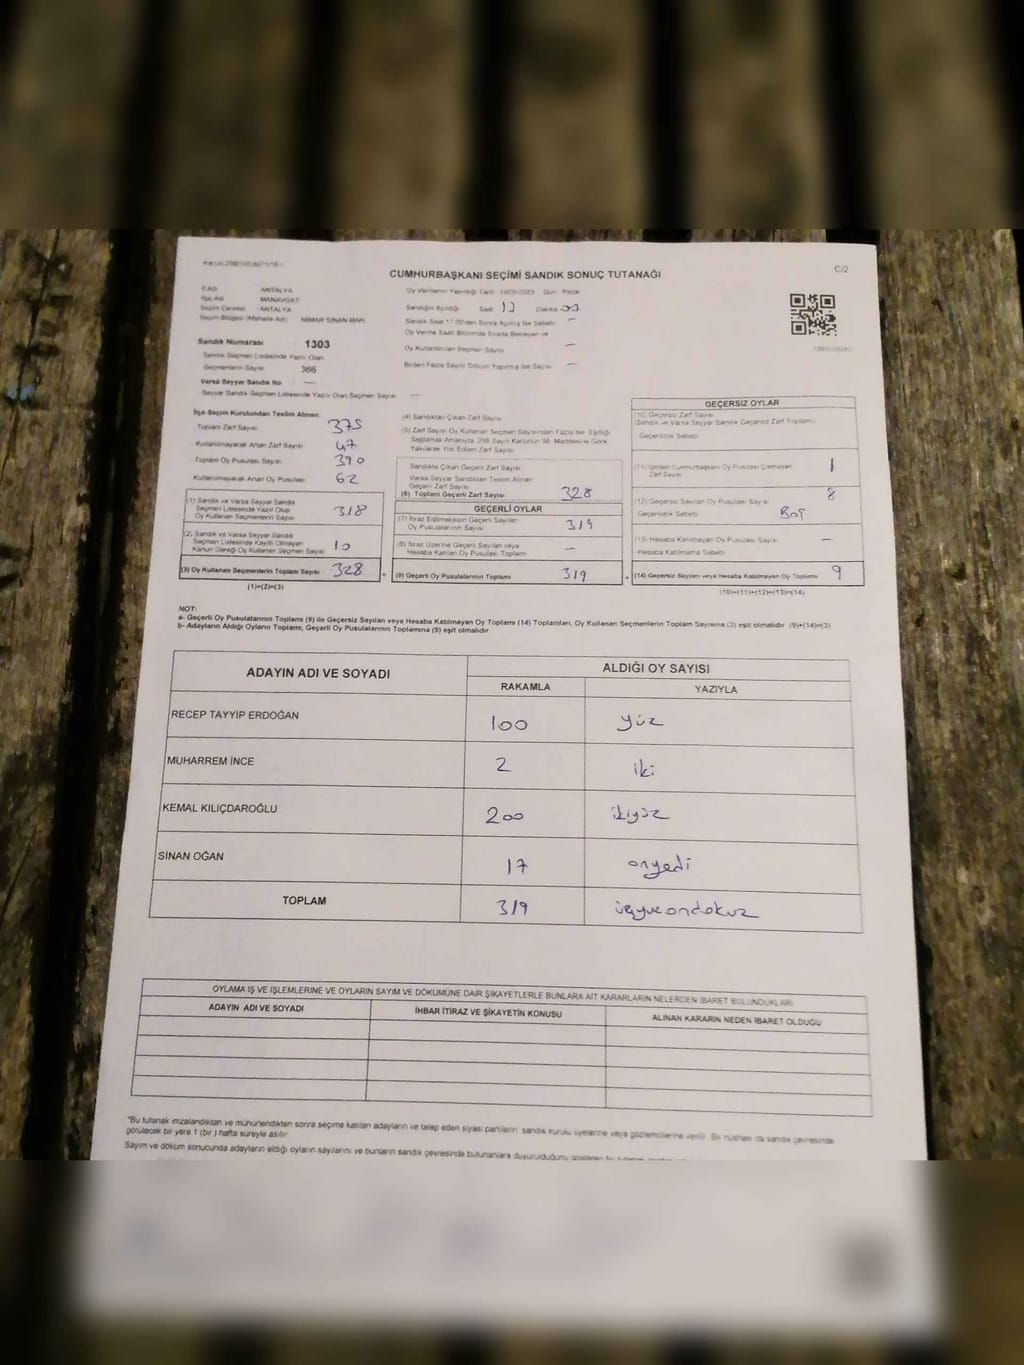 C/2
CUMHURBAŞKANI SEÇİMİ SANDIK SONUÇ TUTANAĞI
İl Adı ANTALYA
İlçe Adı MANAVGAT
Seçim Çevresi ANTALYA
Seçim Bölgesi (Mahalle Adı) MİMAR SİNAN MAH.
Sandık Numarası 1303
Sandık Seçmen Listesinde Yazılı Olan
Seçmenlerin Sayısı 366
Varsa Seyyar Sandık No —
Seyyar Sandık Seçmen Listesinde Yazılı Olan Seçmen Sayısı —
Oy Vermenin Yapıldığı Tarih Gün Pazar
Sandığın Açıldığı Saat 17 Dakika 00
Sandık Saat 17.00'den Sonra Açılmış İse Sebebi —
Oy Verme Saati Bitiminde Sırada Bekleyen ve
Oy Kullandırılan Seçmen Sayısı —
Birden Fazla Sayım Döküm Yapılmış İse Sayısı —
İlçe Seçim Kurulundan Teslim Alınan:
Toplam Zarf Sayısı 375
Kullanılmayarak Artan Zarf Sayısı 47
Toplam Oy Pusulası Sayısı 390
Kullanılmayarak Artan Oy Pusulası 62
(1) Sandık ve Varsa Seyyar Sandık
Seçmen Listesinde Yazılı Olup
Oy Kullanan Seçmenlerin Sayısı 318
(2) Sandık ve Varsa Seyyar Sandık
Seçmen Listesinde Kayıtlı Olmayan
Kanun Gereği Oy Kullanan Seçmen Sayısı 10
(3) Oy Kullanan Seçmenlerin Toplam Sayısı 328
(1)+(2)=(3)
(4) Sandıktan Çıkan Zarf Sayısı
(5) Zarf Sayısı Oy Kullanan Seçmen Sayısından Fazla İse, Eşitliği
Sağlamak Amacıyla, 298 Sayılı Kanunun 98. Maddesine Göre
Yakılarak Yok Edilen Zarf Sayısı
Sandıkta Çıkan Geçerli Zarf Sayısı
Varsa Seyyar Sandıktan Teslim Alınan
Geçerli Zarf Sayısı
(6) Toplam Geçerli Zarf Sayısı 328
GEÇERLİ OYLAR
(7) İtiraz Edilmeksizin Geçerli Sayılan
Oy Pusulalarının Sayısı 319
(8) İtiraz Üzerine Geçerli Sayılan veya
Hesaba Katılan Oy Pusulası Toplamı —
(9) Geçerli Oy Pusulalarının Toplamı 319
GEÇERSİZ OYLAR
(10) Geçersiz Zarf Sayısı
(Sandık ve Varsa Seyyar Sandık Geçersiz Zarf Toplamı)
Geçersizlik Sebebi
(11) İçinden Cumhurbaşkanı Oy Pusulası Çıkmayan
Zarf Sayısı 1
(12) Geçersiz Sayılan Oy Pusulası Sayısı 8
Geçersizlik Sebebi Boş
(13) Hesaba Katılmayan Oy Pusulası Sayısı —
Hesaba Katılmama Sebebi
(14) Geçersiz Sayılan veya Hesaba Katılmayan Oy Toplamı 9
(10)+(11)+(12)+(13)=(14)
NOT:
a- Geçerli Oy Pusulalarının Toplamı (9) ile Geçersiz Sayılan veya Hesaba Katılmayan Oy Toplamı (14) Toplamları, Oy Kullanan Seçmenlerin Toplam Sayısına (3) eşit olmalıdır. (9)+(14)=(3)
b- Adayların Aldığı Oyların Toplamı, Geçerli Oy Pusulalarının Toplamına (9) eşit olmalıdır.
ADAYIN ADI VE SOYADI ALDIĞI OY SAYISI
RAKAMLA YAZIYLA
RECEP TAYYİP ERDOĞAN 100 yüz
MUHARREM İNCE 2 iki
KEMAL KILIÇDAROĞLU 200 ikiyüz
SİNAN OĞAN 17 onyedi
TOPLAM 319 üçyüzondokuz
OYLAMA İŞ VE İŞLEMLERİNE VE OYLARIN SAYIM VE DÖKÜMÜNE DAİR ŞİKAYETLERLE BUNLARA AİT KARARLARIN NELERDEN İBARET BULUNDUKLARI
ADAYIN ADI VE SOYADI İHBAR İTİRAZ VE ŞİKAYETİN KONUSU ALINAN KARARIN NEDEN İBARET OLDUĞU
"Bu tutanak imzalandıktan ve mühürlendikten sonra seçime katılan adayların ve talep eden siyasi partilerin sandık kurulu üyelerine veya gözlemcilerine verilir. Bir nüshası da sandık çevresinde
görülecek bir yere 1 (bir) hafta süreyle asılır.
Sayım ve döküm sonucunda adayların aldığı oyların sayılarını ve bunların sandık çevresinde bulunanlara duyurulduğunu gösteren bu